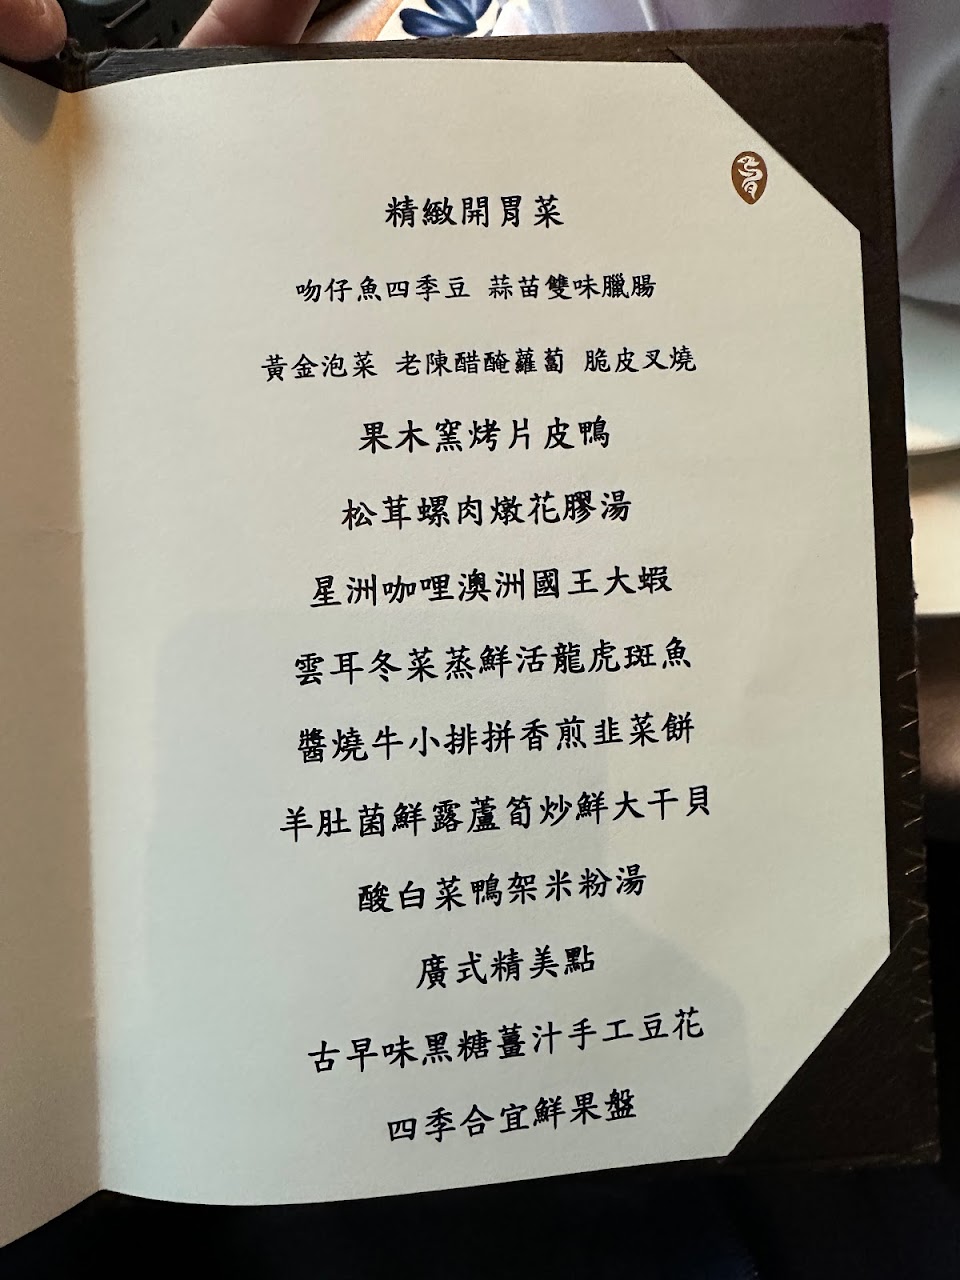 精緻開胃菜
吻仔魚四季豆 蒜苗雙味臘腸
黃金泡菜 老陳醋醃蘿蔔 脆皮叉燒
果木窯烤片皮鴨
松茸螺肉燉花膠湯
星洲咖哩澳洲國王大蝦
雲耳冬菜蒸鮮活龍虎斑魚
醬燒牛小排拼香煎韭菜餅
羊肚菌鮮露蘆筍炒鮮大干貝
酸白菜鴨架米粉湯
廣式精美點
古早味黑糖薑汁手工豆花
四季合宜鮮果盤